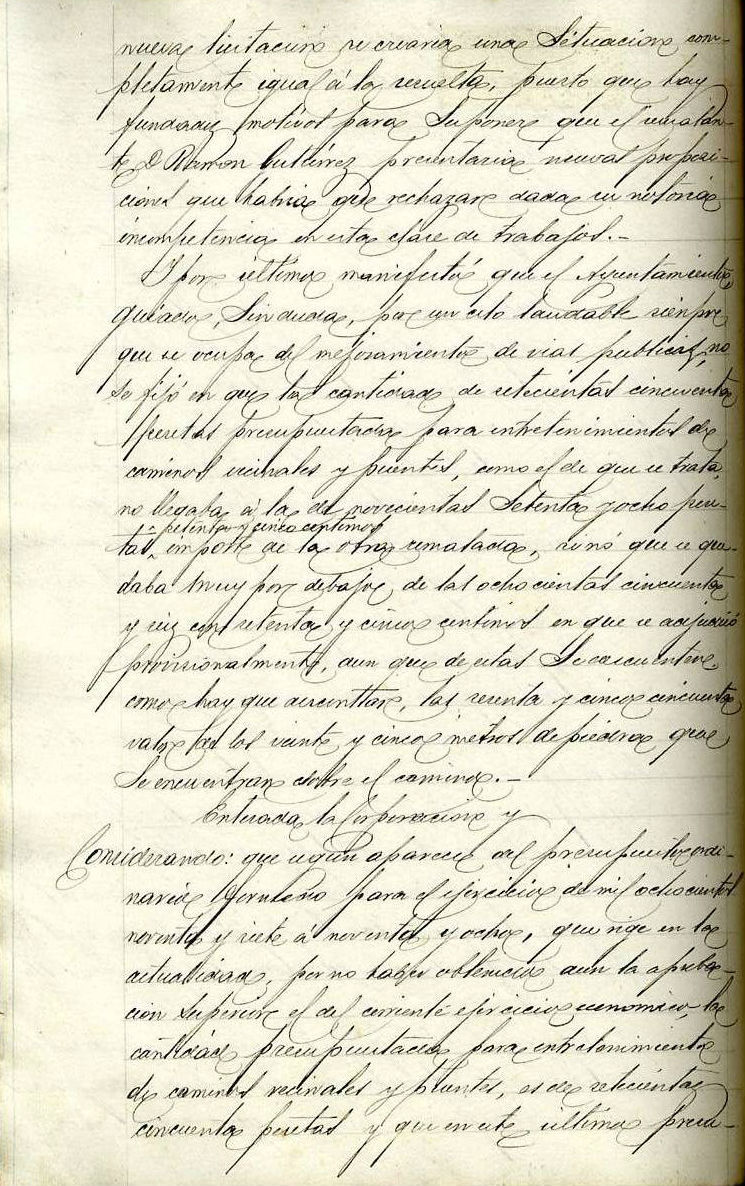 nueva licitacion se crearia una Situacion com-
pletamente igual á la resuelta, puesto que hay
fundados motivos para Suponer que el rematan-
te D Ramon Gutierrez presentaria nuevas proposi-
ciones que habria que rechazar dada su notoria
incompetencia en esta clase de trabajos.-
Y por último manifestó que el Ayuntamiento,
guiado, Sin duda, por un celo laudable siempre
que se ocupa del mejoramiento de vias publicas, no
se fijó en que la cantidad de setecientas cincuenta
pesetas presupuestada para entretenimiento de
caminos vecinales y puentes, como el de que se trata,
no llegaba á la de novecientas Setenta y ocho pese-
setenta y cinco centimos
tas, importe de la obra rematada, sinó que se que-
daba muy por debajo, de las ochocientas cincuenta
y seis con setenta y cinco centimos en que se adjudicó
provisionalmente, aun que de estas Se descuenten,
como hay que descontar, las sesenta y cinco cincuenta
valor de los veinte y cinco metros de piedra que
Se encuentran sobre el camino.-
Enterada la Corporacion y
Considerando: que segun aparece del presupuesto ordi-
nario formado para el ejercicio de mil ochocientos
noventa y siete a noventa y ocho, que rige en la
actualidad, por no haber obtenido aun la aproba-
cion Superior el del corriente ejercicio economico, la
cantidad presupuestada para entretenimiento
de caminos vecinales y puentes, es de setecientas
cincuenta pesetas y que en este último presu-